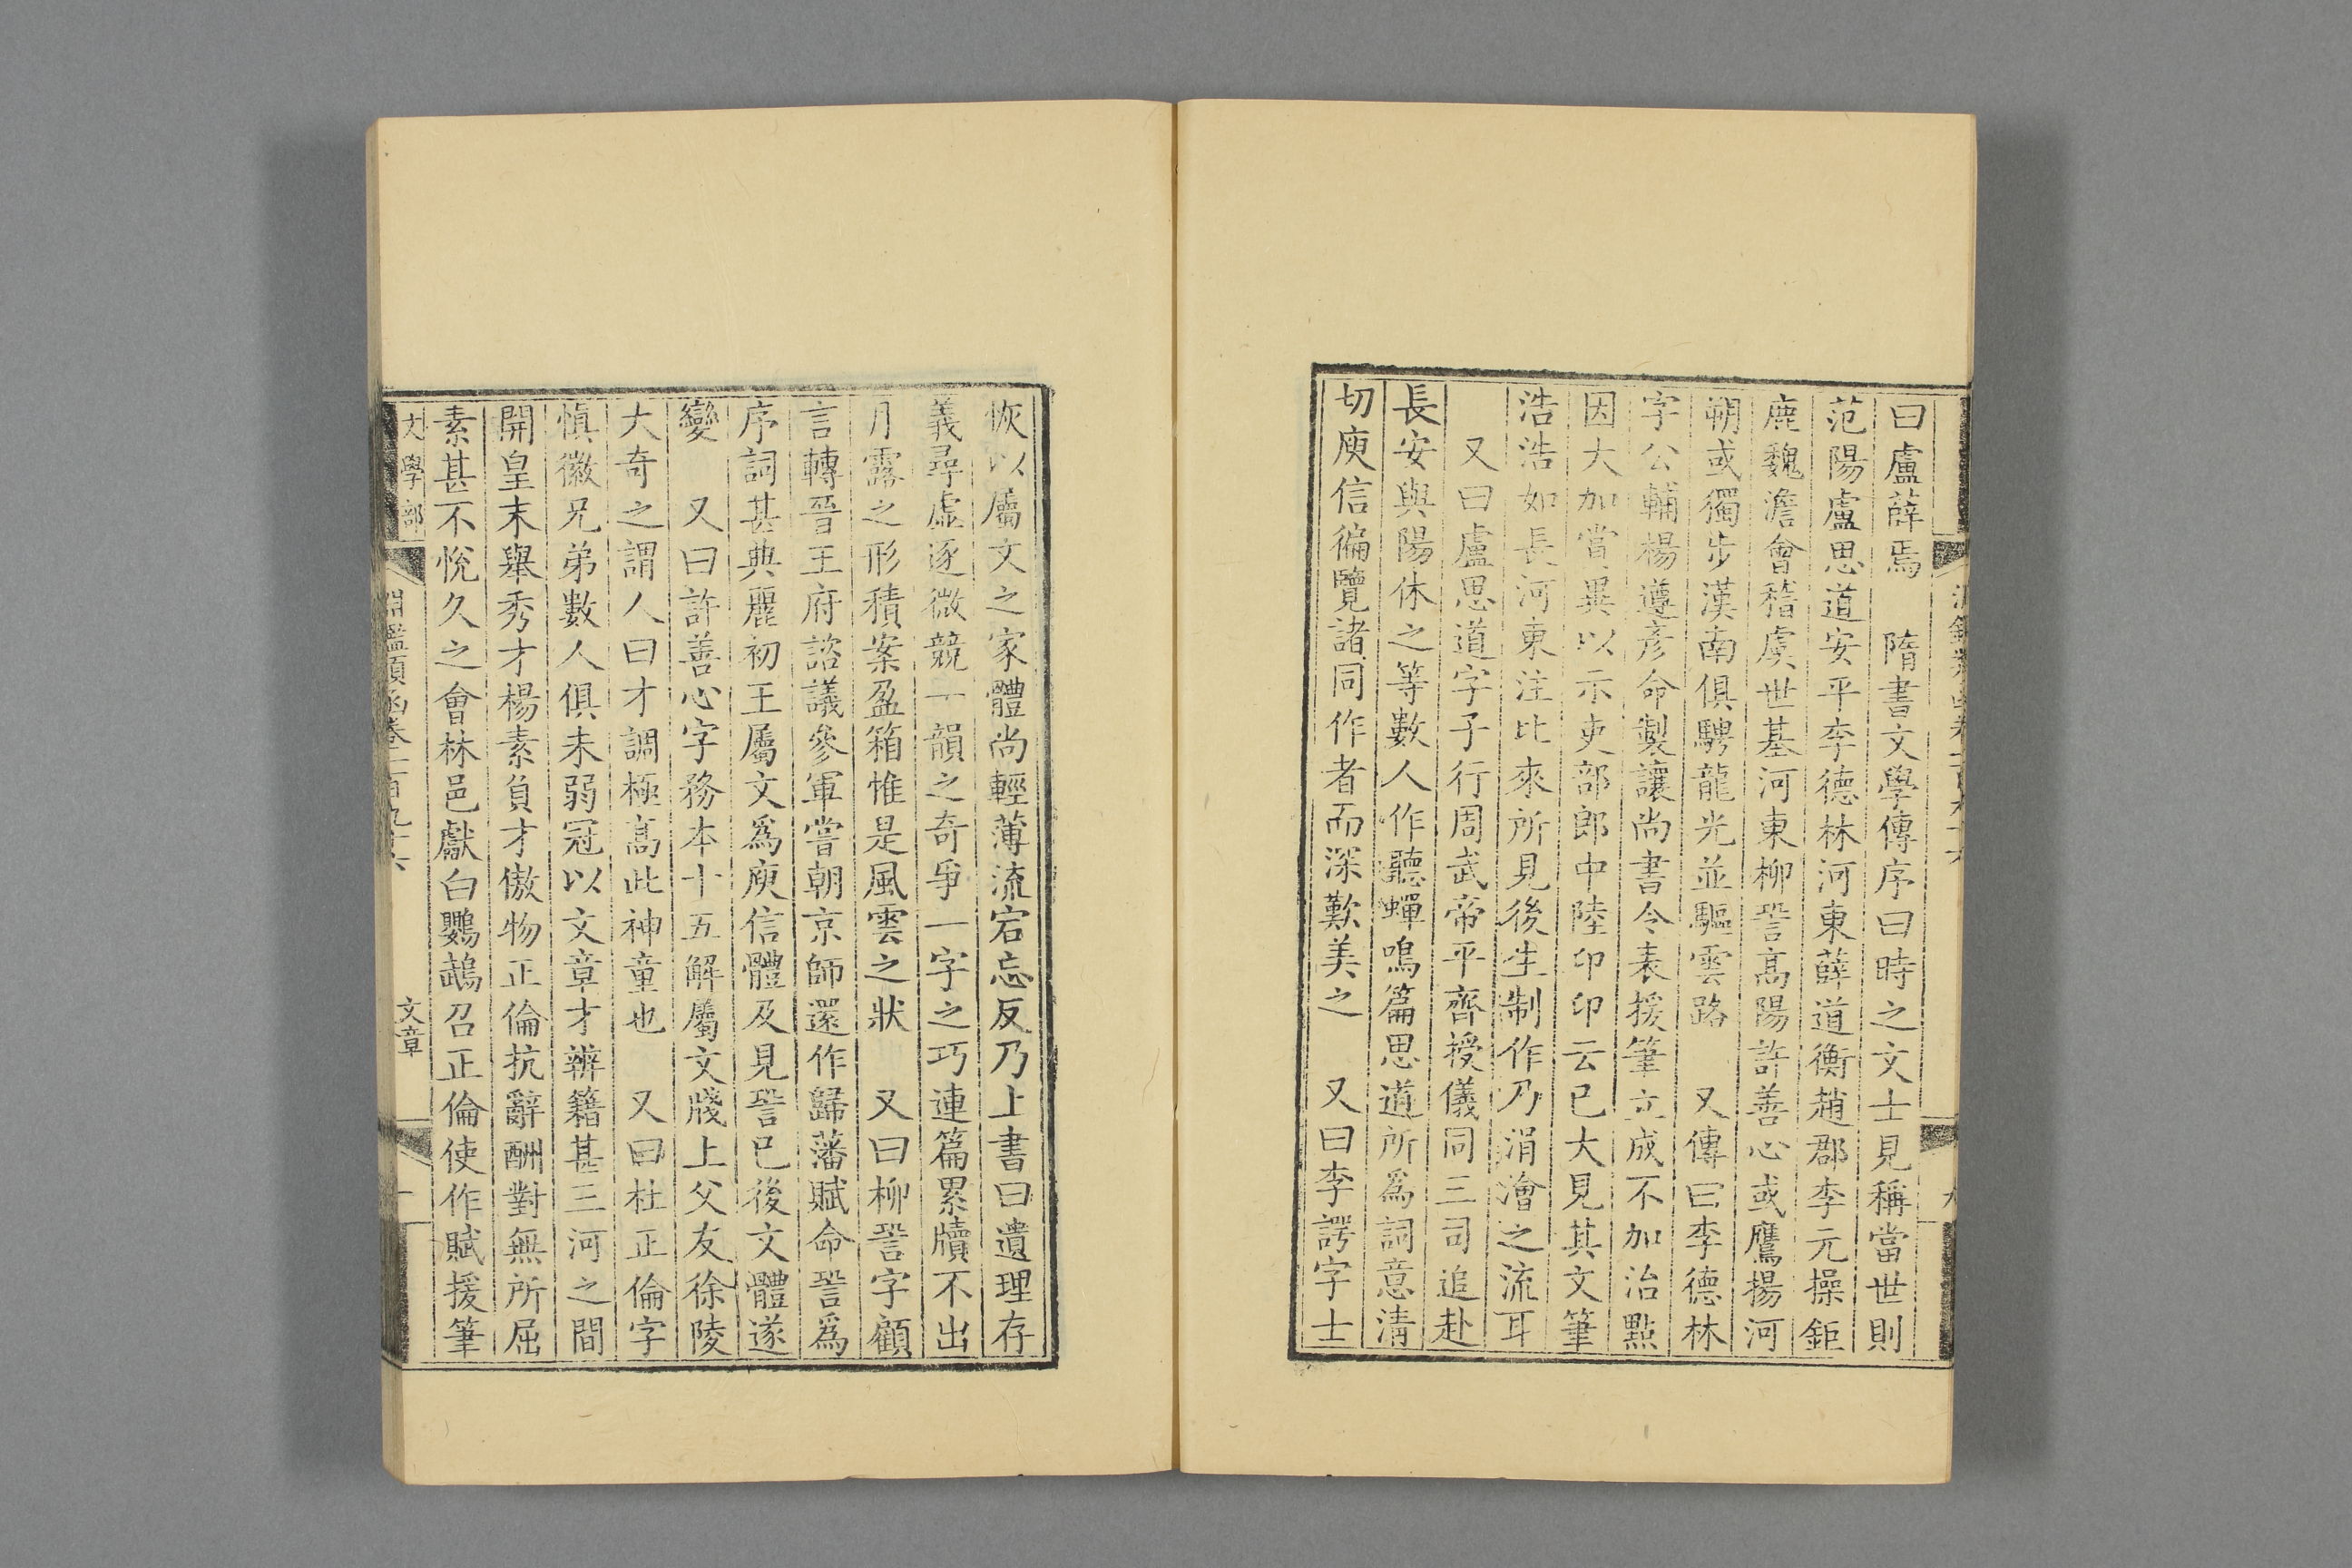 曰盧薛焉　隋書文學傳序曰時之文士見稱當世則
范陽盧思道安平李德林河東薛道衡趙郡李元操鉅
鹿魏澹會稽虞世基河東柳䛒高陽許善心或鷹揚河
朔或獨步漢南俱騁龍光並驅雲路　又傳曰李德林
字公輔楊遵彥命製讓尚書令表援筆立成不加治點
因大加賞異以示吏部郎中陸卬卬云已大見其文筆
浩浩如長河東注比來所見後生制作乃涓澮之流耳
又曰盧思道字子行周武帝平齊授儀同三司追赴
長安與陽休之等數人作聽蟬鳴篇思道所爲詞意清
切庾信徧覽諸同作者而深歎美之　又曰李諤字士
恢以屬文之家體尚輕薄流宕忘反乃上書曰遺理存
義尋虛逐微競一韻之奇爭一字之巧連篇累牘不出
月露之形積案盈箱惟是風雲之狀　又曰柳䛒字顧
言轉晉王府諮議參軍嘗朝京師還作歸藩賦命䛒爲
序詞甚典麗初王屬文爲庾信體及見䛒已後文體遂
變　又曰許善心字務本十五解屬文牋上父友徐陵
大奇之謂人曰才調極高此神童也　又曰杜正倫字
愼徽兄弟數人俱未弱冠以文章才辨籍甚三河之間
開皇末舉秀才楊素負才傲物正倫抗辭酬對無所屈
素甚不悅久之會林邑獻白鸚鵡召正倫使作賦援筆
文學部
淵鑑類函卷一百九十六
文章